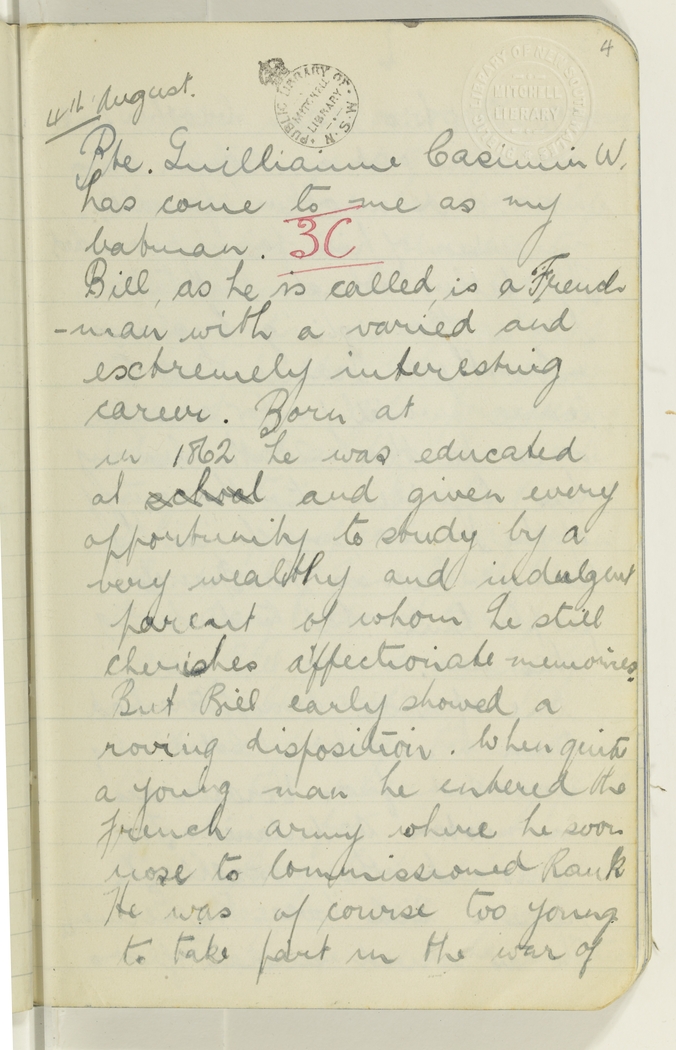 4
4th August.
PUBLIC LIBRARY OF N.S.W.
MITCHELL LIBRARY
MITCHELL LIBRARY
Pte. Guillianme Casimir W.
has come to me as my
batman. 3C
Bill, as he is called, is a French
-man with a varied and
extremely interesting
career. Born at
in 1862 he was educated
at school and given every
opportunity to study by a
very wealthy and indulgent
parent of whom he still
cherishes affectionate memories.
But Bill early showed a
roving disposition. When quite
a young man he entered the
French army where he soon
rose to Commissioned Rank
He was of course too young
to take part in the war of